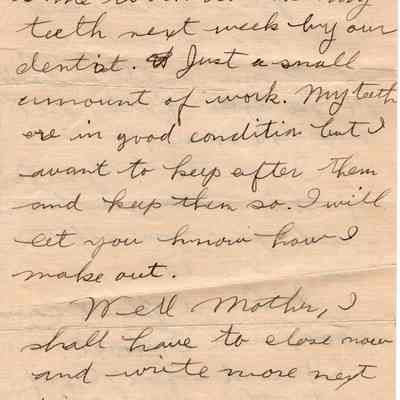 teeth next week by our
dentist. Just a small
amount of work. My teeth
are in good condition but I
want to keep after them
and keep them so. I will
let you know how I
make out.
Well Mother, I
shall have to close now
and write more next